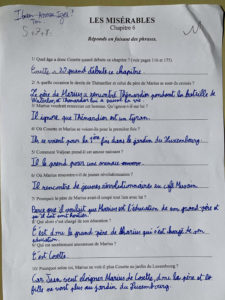 LES MISÉRABLES
Chapitre 6
Réponds en faisant des phrases.
1) Quel âge a donc Cosette quand débute ce chapitre ? (Voir pages 116 et 155)
Cosette a 20 quand débute ce chapitre.
2) A quelle occasion le destin de Thénardier et celui du père de Marius se sont-ils croisés ?
Le père de Marius a rencontré Thénardier pendant la bataille de
Waterloo, et Thénardier lui a sauvé la vie
3) Marius voudrait remercier cet homme. Qu'ignore-t-il sur lui ?
Il ignore que Thénardier est un tyran.
4) Où Cosette et Marius se voient-ils pour la première fois ?
Ils se voient pour la 1ère fois dans le jardin du Luxembourg.
5) Comment Valjean prend-il cet amour naissant ?
Il le prend pour une
6) Où Marius rencontre-t-il de jeunes révolutionnaires ?
Il rencontre de jeunes révolutionnaires au café Musain.
7) Pourquoi le père de Marius avait-il coupé tout lien avec lui ?
Parce que il voulait que Marius est l'éducation de son grand-père et
8) Qui alors s'est chargé de son éducation ?
Est donc le grand-père de Marius qui s'est chargé de son
éducation.
9) Qui est seulement amoureux de Marius ?
C'est Cosette.
10) Pourquoi selon toi, Marius ne voit-il plus Cosette au jardin du Luxembourg ?
Car Jean veut éloigner Marius de Cosette, donc le père et la
fille ne vont plus au jardin du Luxembourg.